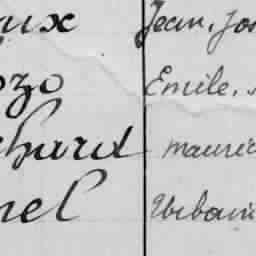 ux Jean, Jos
ozo Emile,
chard mauric
nel Urbain